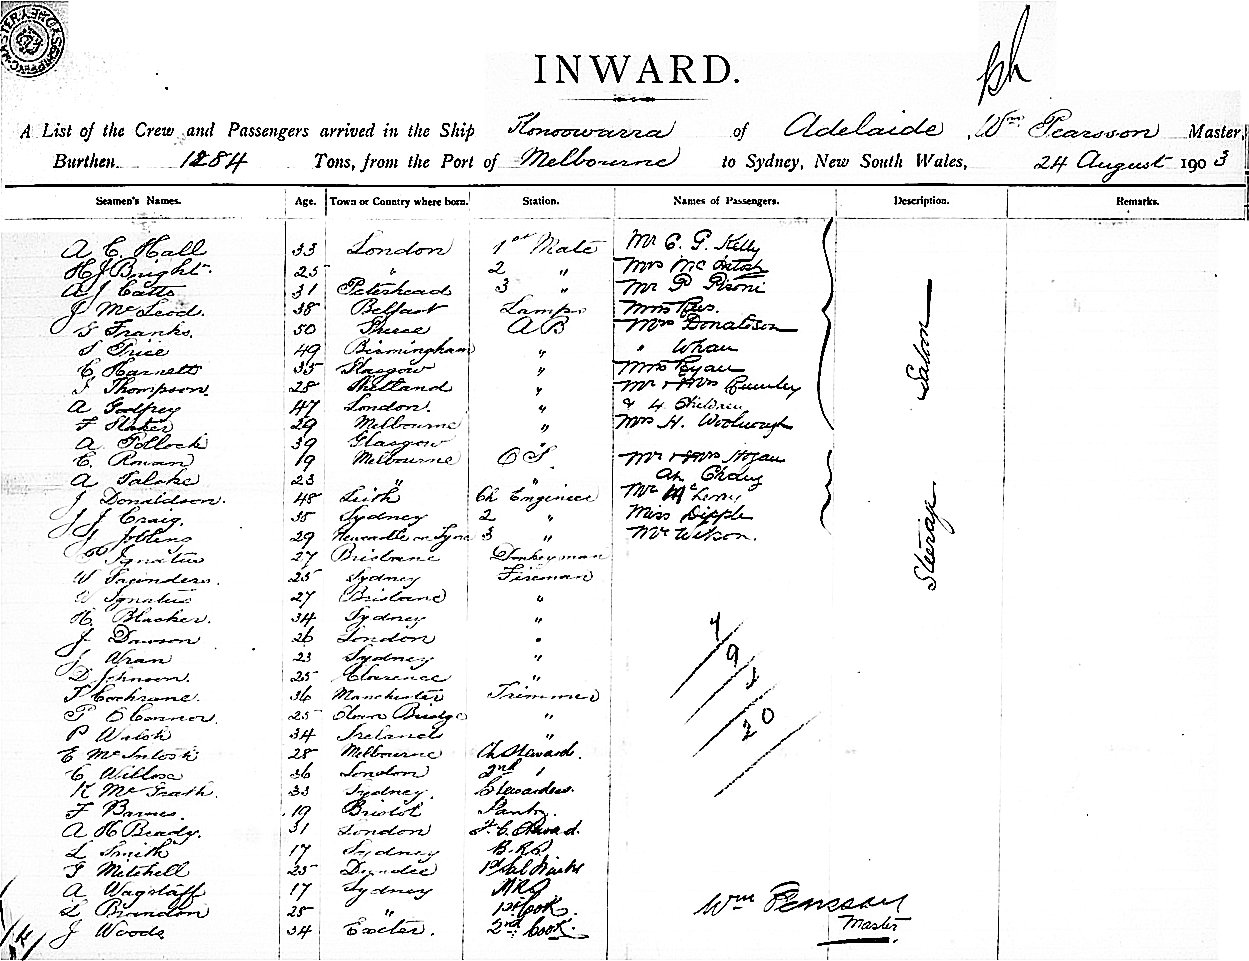 INWARD.
A List of the Crew and Passengers arrived in the Ship Konoowarra of Adelaide, Wm Pearsson Master,
Burthen 1284 Tons, from the Port of Melbourne to Sydney, New South Wales, 24 August 1903
Seamen's Names. Age. Town or Country where born. Station. Names of Passengers. Description. Remarks.
A C Hall 33 London 1st Mate Mr C. G. Kelly
H J Bright 25 " 2 " Mrs McIntosh
A J Catto 31 Peterhead 3 " Mr P Pisoni
J McLeod. 38 Belfast Lamps
Franks. 50 A B Mrs Donaldson
S Price 49 Birmingham " "
C Harnett 35 Glasgow " Mrs Ryan
T Thompson. 28 Shetland " Mr & Mrs
A Godfrey 47 London. " & 4 Children
F 29 Melbourne " Mrs H. Woolnough
A Pollock 39 Glasgow "
E. Rowan 19 Melbourne O S. Mr & Mrs Hogan
A 23 " " Ah
J Donaldson. 48 Leith Ch Engineer Mr
J J Craig. 35 Sydney 2 " Miss Dipple
J Jobling 29 Newcastle on Tyne 3 " Mr Wilson.
P Ignatus 27 Brisbane Donkeyman
W Saunders. 25 Sydney Fireman
W Ignatus 27 Brisbane "
H Blacker. 34 Sydney "
J Dawson 26 London "
J Wran 23 Sydney "
D Johnson. 25 Clarence "
T Cochrane. 36 Manchester Trimmer
P O'Connor. 25 Bridge "
P Walsh 34 Ireland "
E McIntosh 28 Melbourne Ch Steward.
C Willox 36 London 2nd "
K McGrath. 33 Sydney. Stewardess.
F Barnes. 19 Bristol Pantry.
A H Beady. 31 London F. C. Steward.
L Smith 17 Sydney
F Mitchell 25 Dundee 1st Sal
A Wagstaff 17 Sydney
L Brandon 25 " 1st Cook.
J Woods 34 Exeter. 2nd Cook.
Saloon
Steerage
7
9
20
Wm Pearsson
Master